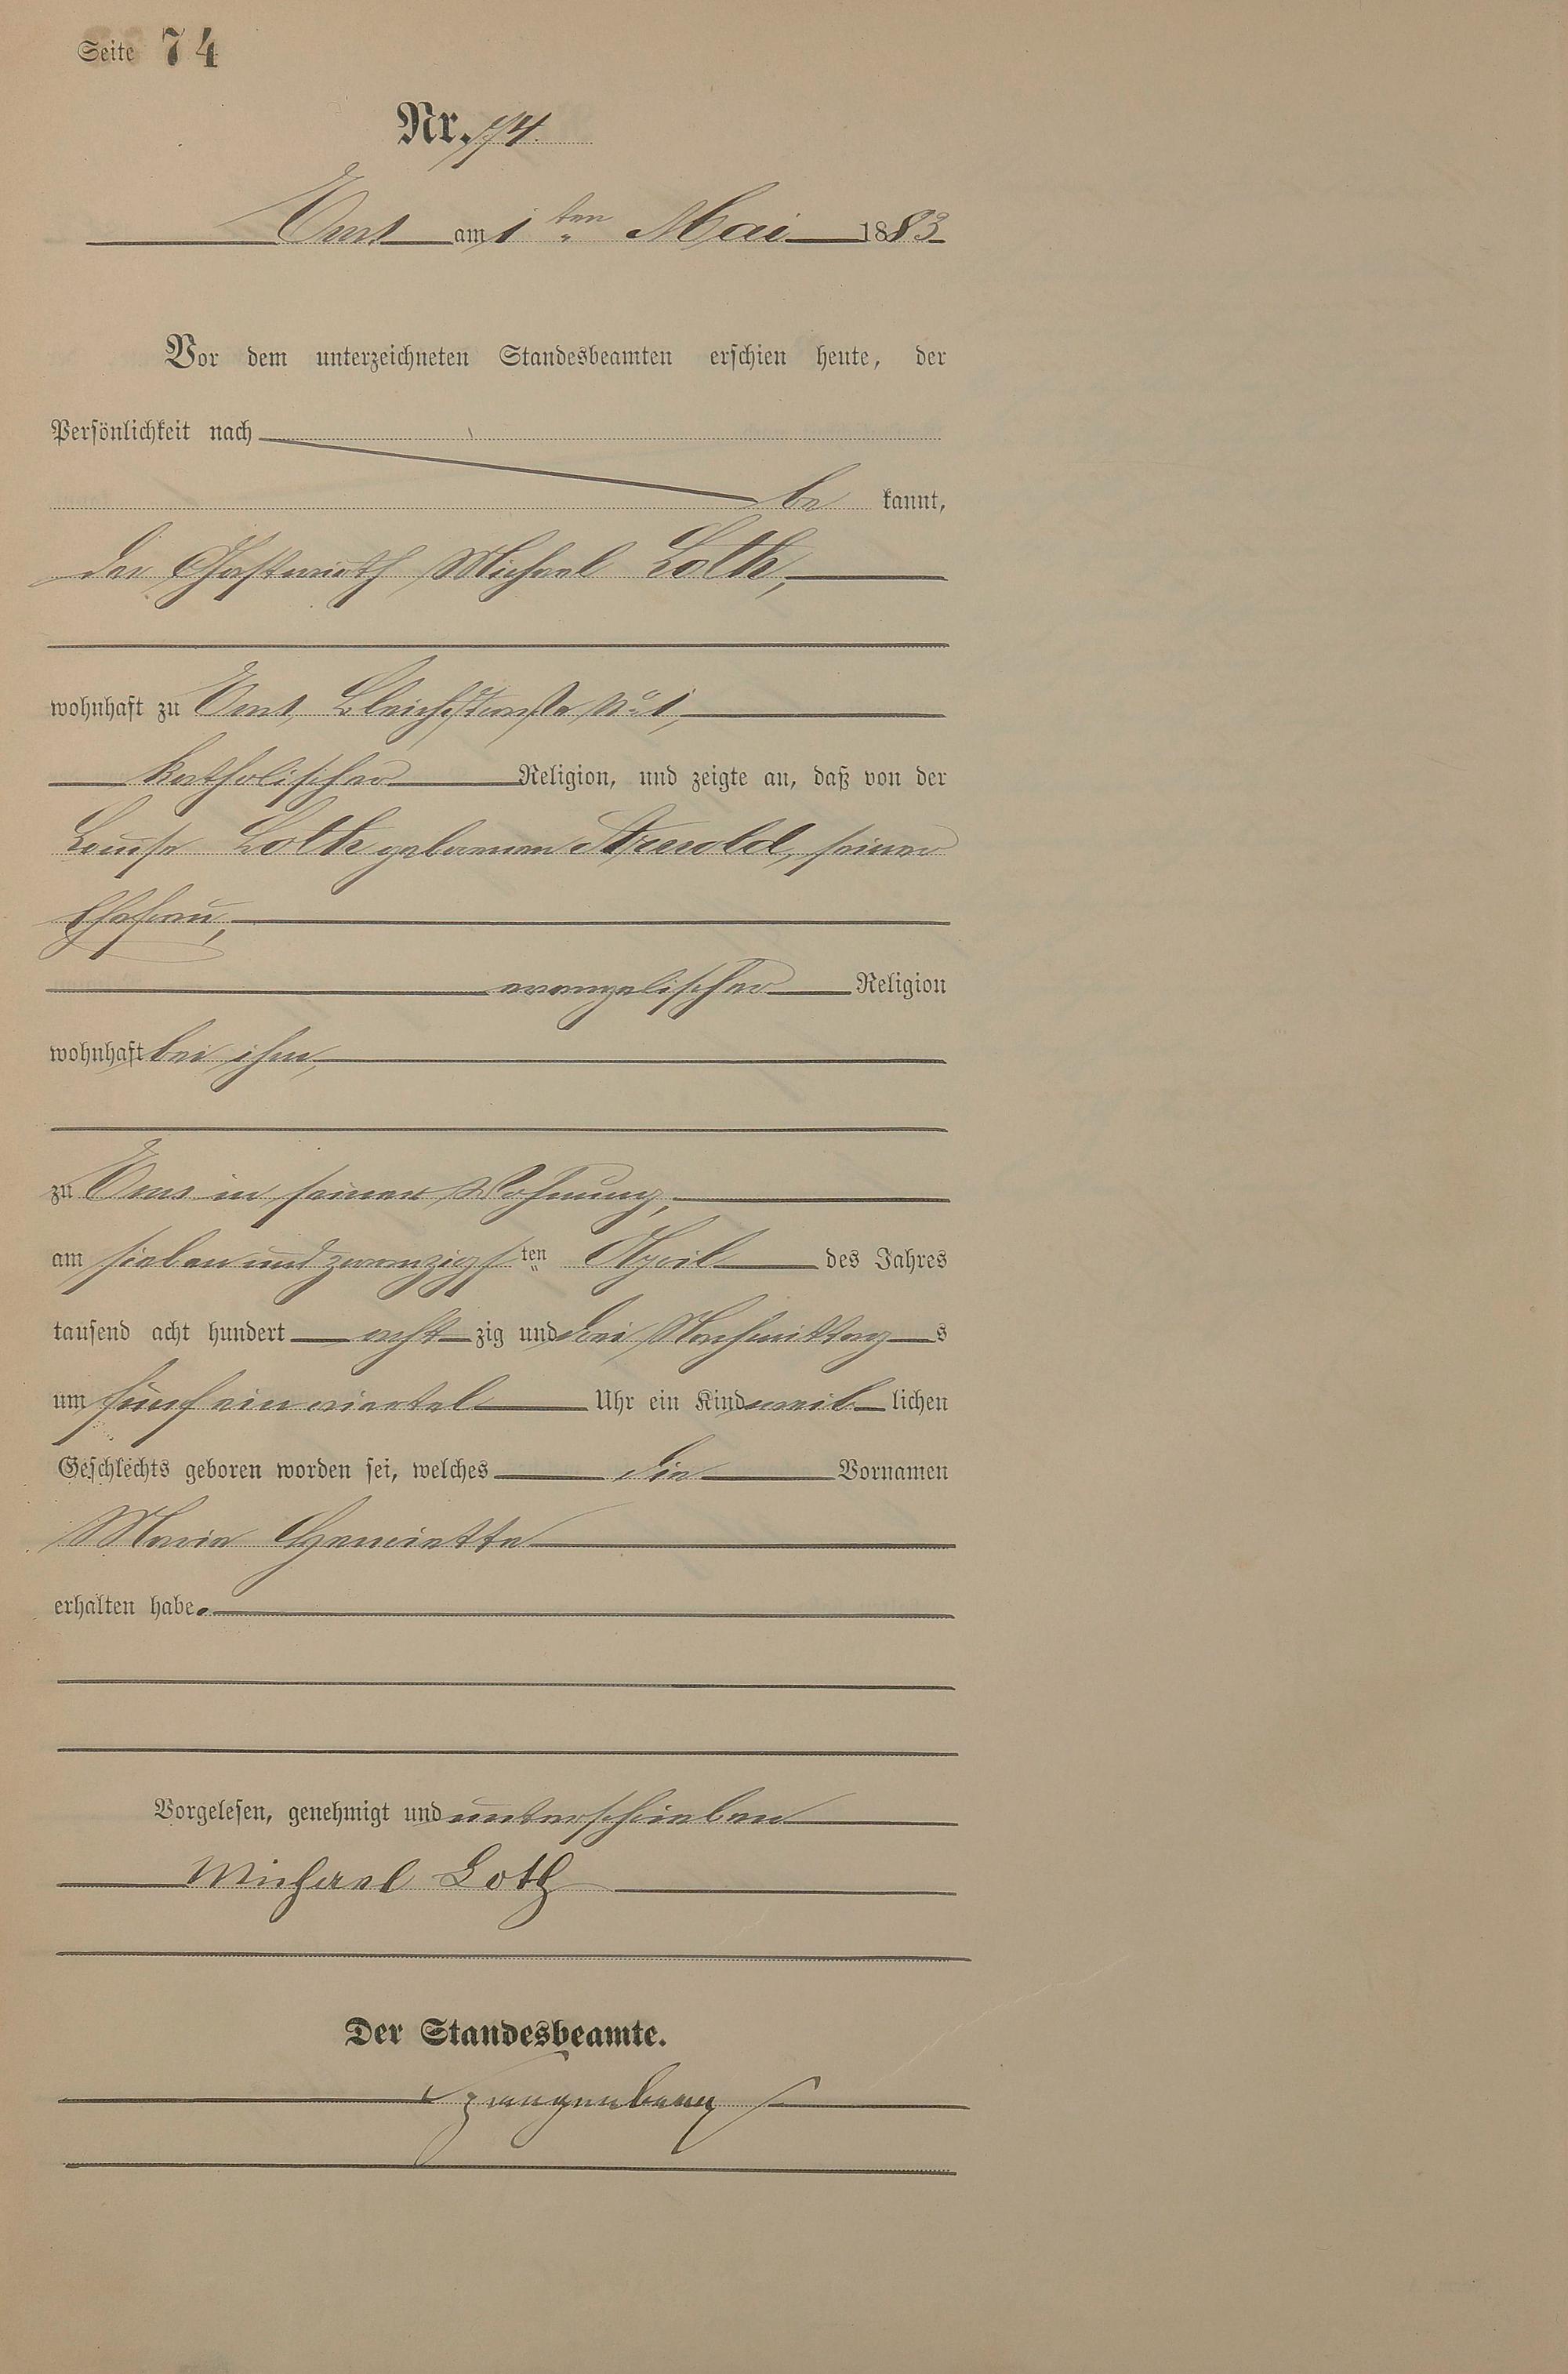 Seite 74
Nr. 74.
Ems am 1ten Mai 1883
Vor dem unterzeichneten Standesbeamten erschien heute, der
Persönlichkeit nach
be kannt,
der Gastwirth Michael Loth,
wohnhaft zu Ems, Bleichstraße No 1,
katholischer Religion, und zeigte an, daß von der
Louise Loth geborenen Arnold, seiner
Ehefrau,
evangelischer Religion
wohnhaft bei ihm,
zu Ems in seiner Wohnung,
am sieben und zwanzigsten April des Jahres
tausend acht hundert acht zig und drei Nachmittags
um fünf ein viertel Uhr ein Kind weib lichen
Geschlechts geboren worden sei, welches die Vornamen
Maria Henriette
erhalten habe.
Vorgelesen, genehmigt und unterschrieben
Michael Loth
Der Standesbeamte.